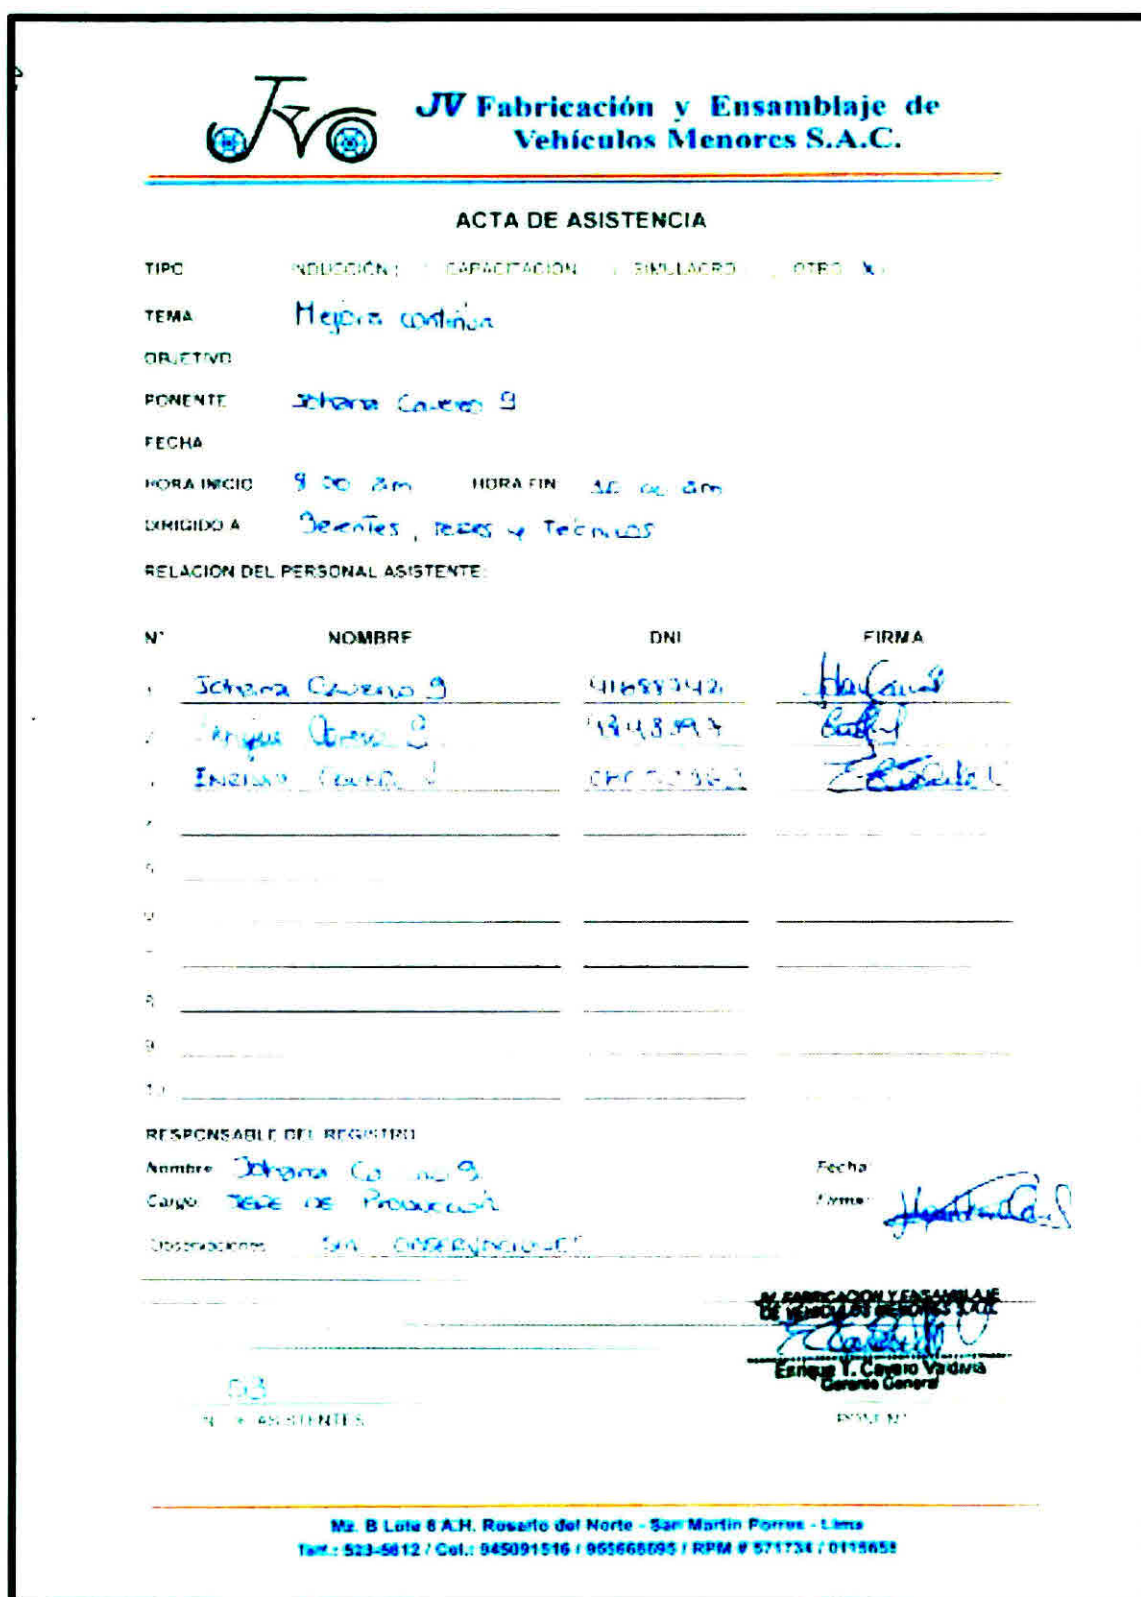 JV Fabricación y Ensamblaje de
Vehículos Menores S.A.C.
ACTA DE ASISTENCIA
TIPO INDUCCIÓN ( ) CAPACITACIÓN ( ) SIMULACRO ( ) OTRO (X)
TEMA Mejora continua
OBJETIVO
PONENTE Johana Cavero G
FECHA
HORA INICIO 9 00 am HORA FIN 10 00 am
DIRIGIDO A Gerentes, jefes y Técnicos
RELACION DEL PERSONAL ASISTENTE:
N° NOMBRE DNI FIRMA
1 Johana Cavero G
2 Cavero G.
3 Cavero V
4
5
6
7
8
9
10
RESPONSABLE DEL REGISTRO
Nombre Johana Ca G. Fecha
Cargo JEFE DE PRODUCCIÓN Firma
Observaciones SIN OBSERVACIONES
JV FABRICACION Y ENSAMBLAJE
DE VEHICULOS MENORES S.A.C.
Enrique T. Cavero Valdivia
Gerente General
03
N° DE ASISTENTES PONENTE
Mz. B Lote 6 A.H. Rosario del Norte - San Martin Porres - Lima
Telf.: 523-5612 / Cel.: 945091516 / 965668695 / RPM # 571734 / 0115658